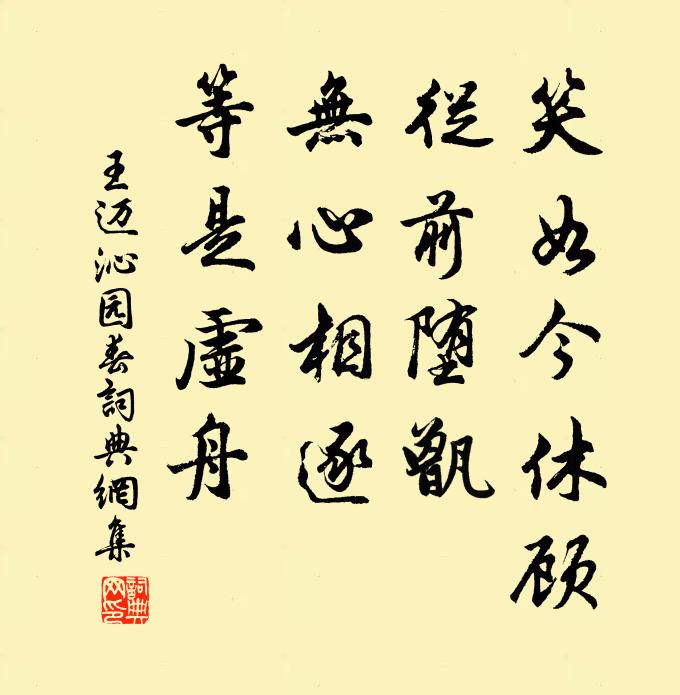 笑如今休顾
從前堕甑
無心相逐
等是虛舟
王迈沁园春詞典網集
詞典网印